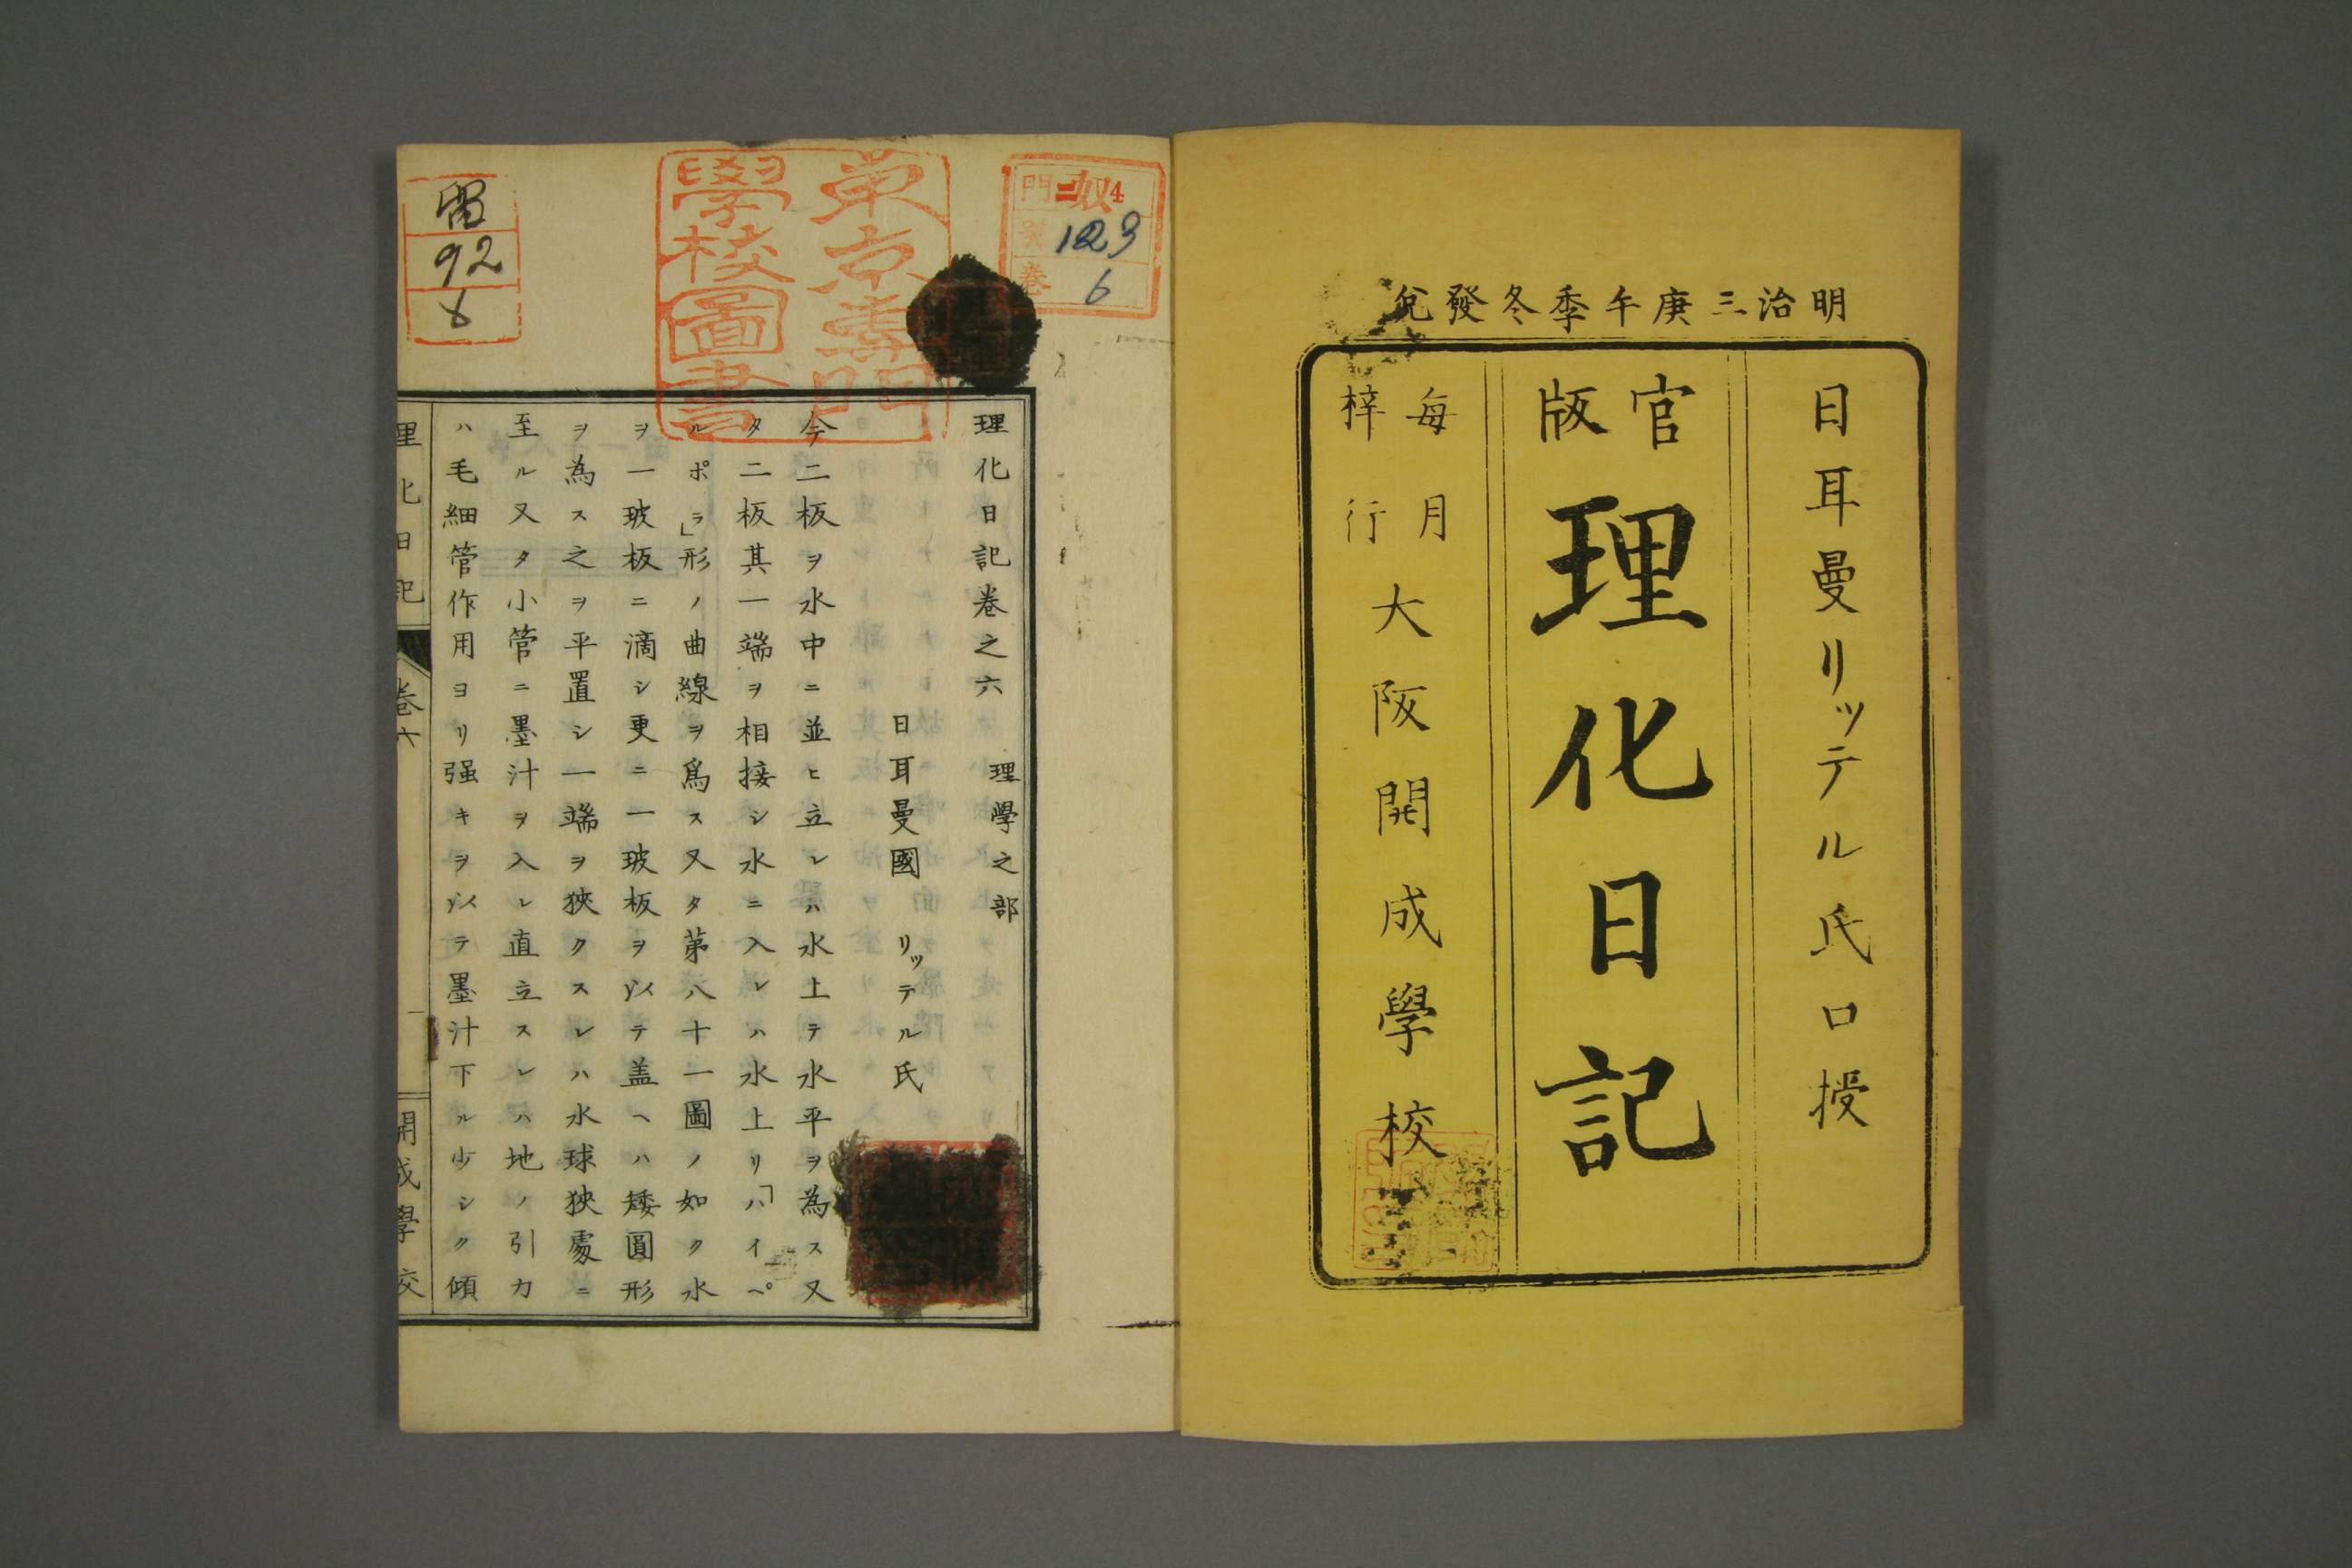 明治三庚午季冬發兌
日耳曼リッテル氏口授
官版
理化日記
毎月梓行
大阪開成學校
門 二奴4
號 123
卷 6
東京專門
學校圖書
理化日記卷之六 理學之部
日耳曼國 リッテル氏
今二板ヲ水中ニ並ヒ立レハ水上テ水平ヲ為ス又
タ二板其一端ヲ相接シ水ニ入レハ水上リ「ハイペ
ルポラ」形ノ曲線ヲ爲ス又タ第八十一圖ノ如ク水
ヲ一玻板ニ滴シ更ニ一玻板ヲ以テ盖ヘハ矮圓形
ヲ為ス之ヲ平置シ一端ヲ狹クスレハ水球狹處ニ
至ル又タ小管ニ墨汁ヲ入レ直立スレハ地ノ引力
ハ毛細管作用ヨリ强キヲ以テ墨汁下ル少シク傾
理化日記 卷六 一 開成學校
92